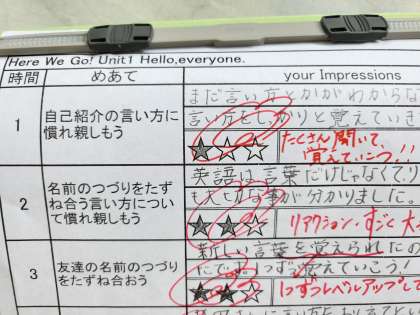 Here We Go! Unit1 Hello,everyone.
時間 めあて your Impressions
まだ言い方とかがわからな
1 自己紹介の言い方に慣れ親しもう
言い方をしっかりと覚えていき
たくさん聞いて、
覚えていこう!!
英語は言葉だけじゃなくてリ
2 名前のつづりをたず
ね合う言い方につい
て慣れ親しもう
も大せつな事が分かりました。
リアクション、すごく大
新しい言葉を覚えられたの
3 友達の名前のつづり
をたずね合おう
1つずつレベルアップして